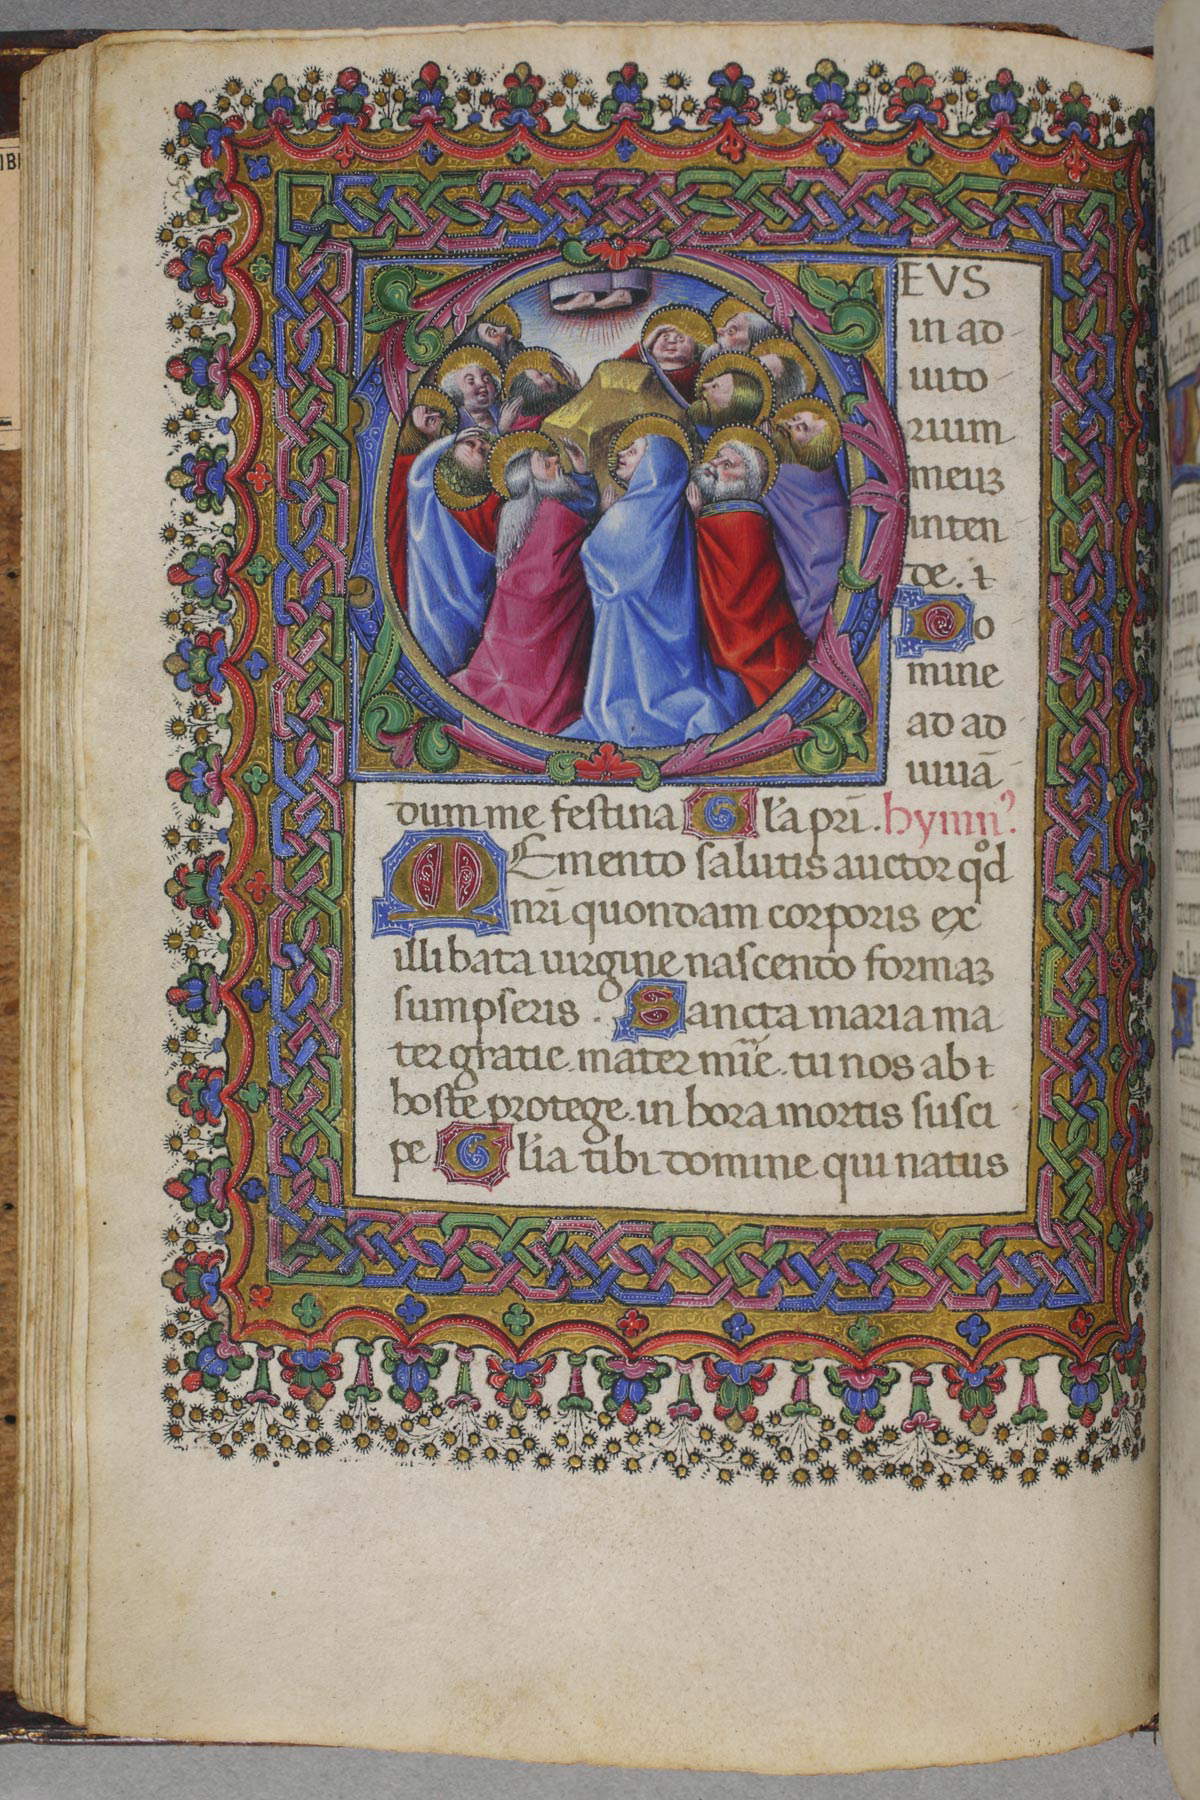 DEVS
in ad
iuto
rium
meuʒ
inten
de. ⁊
Do
mine
ad ad
iuuā
dum me festina Gl'a pri. hymn⁹.
MEmento salutis auctor qᵒd
nri̅ quondam corporis ex
illibata uirgine nascendo formaʒ
sumpseris. Sancta maria ma
ter gratie. mater mi̅e. tu nos ab
hoste protege. in hora mortis susci
pe Gl'ia tibi domine qui natus